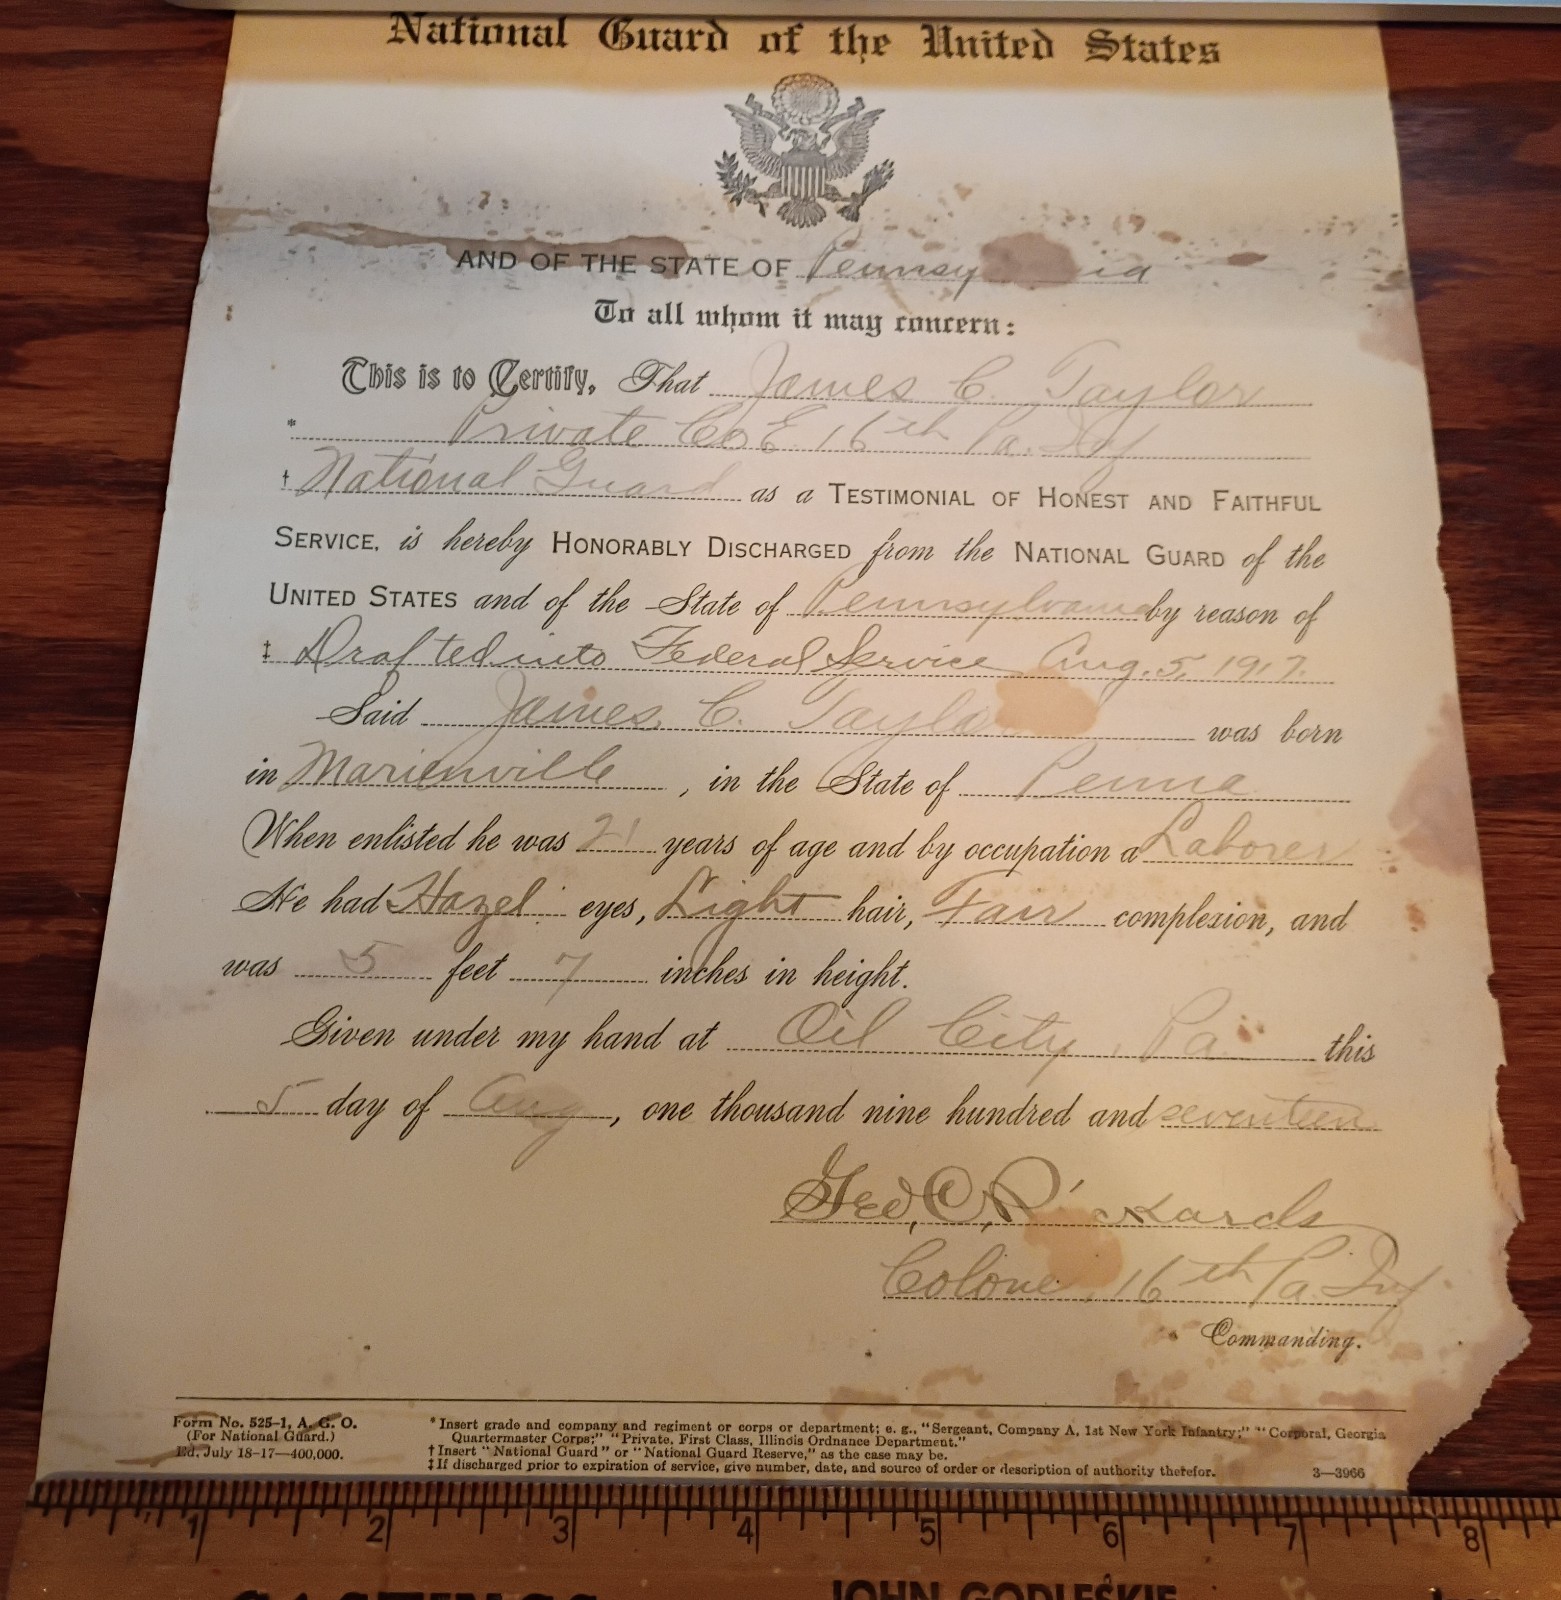 National Guard of the United States
AND OF THE STATE OF Pennsy ia
To all whom it may concern:
This is to Certify, That James C. Taylor
* Private Co E. 16th Pa. Inf
† National Guard as a TESTIMONIAL OF HONEST AND FAITHFUL
SERVICE, is hereby HONORABLY DISCHARGED from the NATIONAL GUARD of the
UNITED STATES and of the State of Pennsylvania by reason of
‡ Drafted into Federal Service Aug. 5, 1917.
Said James C. Taylo was born
in Marienville, in the State of Penna
When enlisted he was 21 years of age and by occupation a Laborer
He had Hazel eyes, Light hair, Fair complexion, and
was 5 feet 7 inches in height.
Given under my hand at Oil City, Pa. this
5 day of Aug, one thousand nine hundred and seventeen
Geo, C, Rickards
Colonel, 16th Pa. Inf
Commanding.
Form No. 525-1, A. G. O.
(For National Guard.)
Ed. July 18-17—400,000.
* Insert grade and company and regiment or corps or department; e. g., "Sergeant, Company A, 1st New York Infantry;" "Corporal, Georgia
Quartermaster Corps;" "Private, First Class, Illinois Ordnance Department."
† Insert "National Guard" or "National Guard Reserve," as the case may be.
‡ If discharged prior to expiration of service, give number, date, and source of order or description of authority therefor.
3—3966
1 2 3 4 5 6 7 8
JOHN GODLESKIE